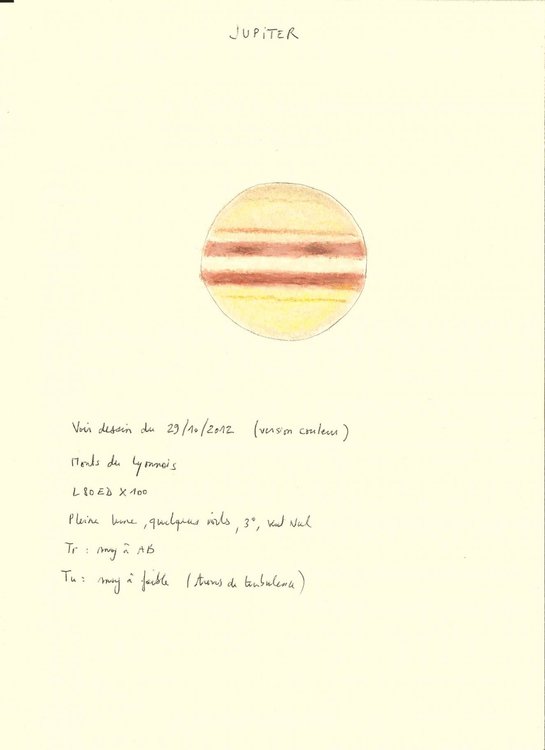 JUPITER
Voir dessin du 29/10/2012 (version couleur)
Monts du Lyonnais
L80ED X100
Pleine lune, quelques voils, 3°, vent nul
Tr : moy à AB
Tu : moy à faible (trous de turbulence)